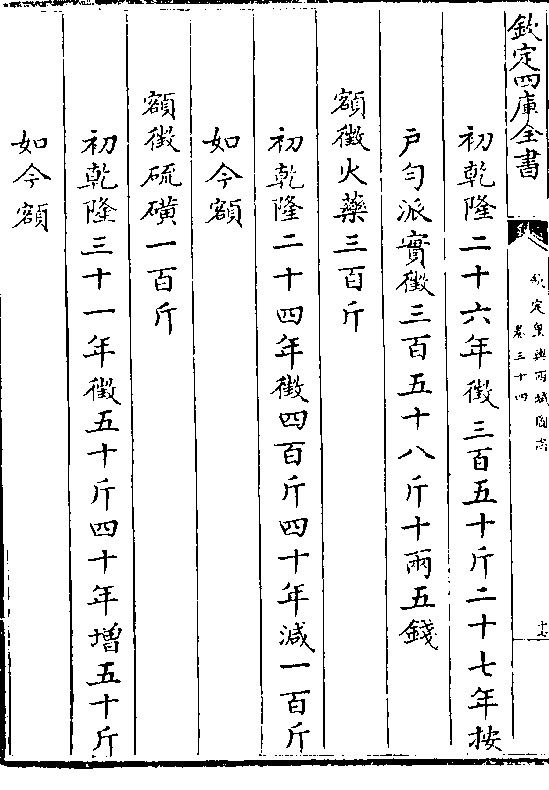 欽定四庫全書
欽定皇輿西域圖志
卷三十四
十七
初乾隆二十六年徵三百五十斤二十七年按
戸勻派實徵三百五十八斤十兩五錢
額徵火藥三百斤
初乾隆二十四年徵四百斤四十年減一百斤
如今額
額徵硫磺一百斤
初乾隆三十一年徵五十斤四十年增五十斤
如今額